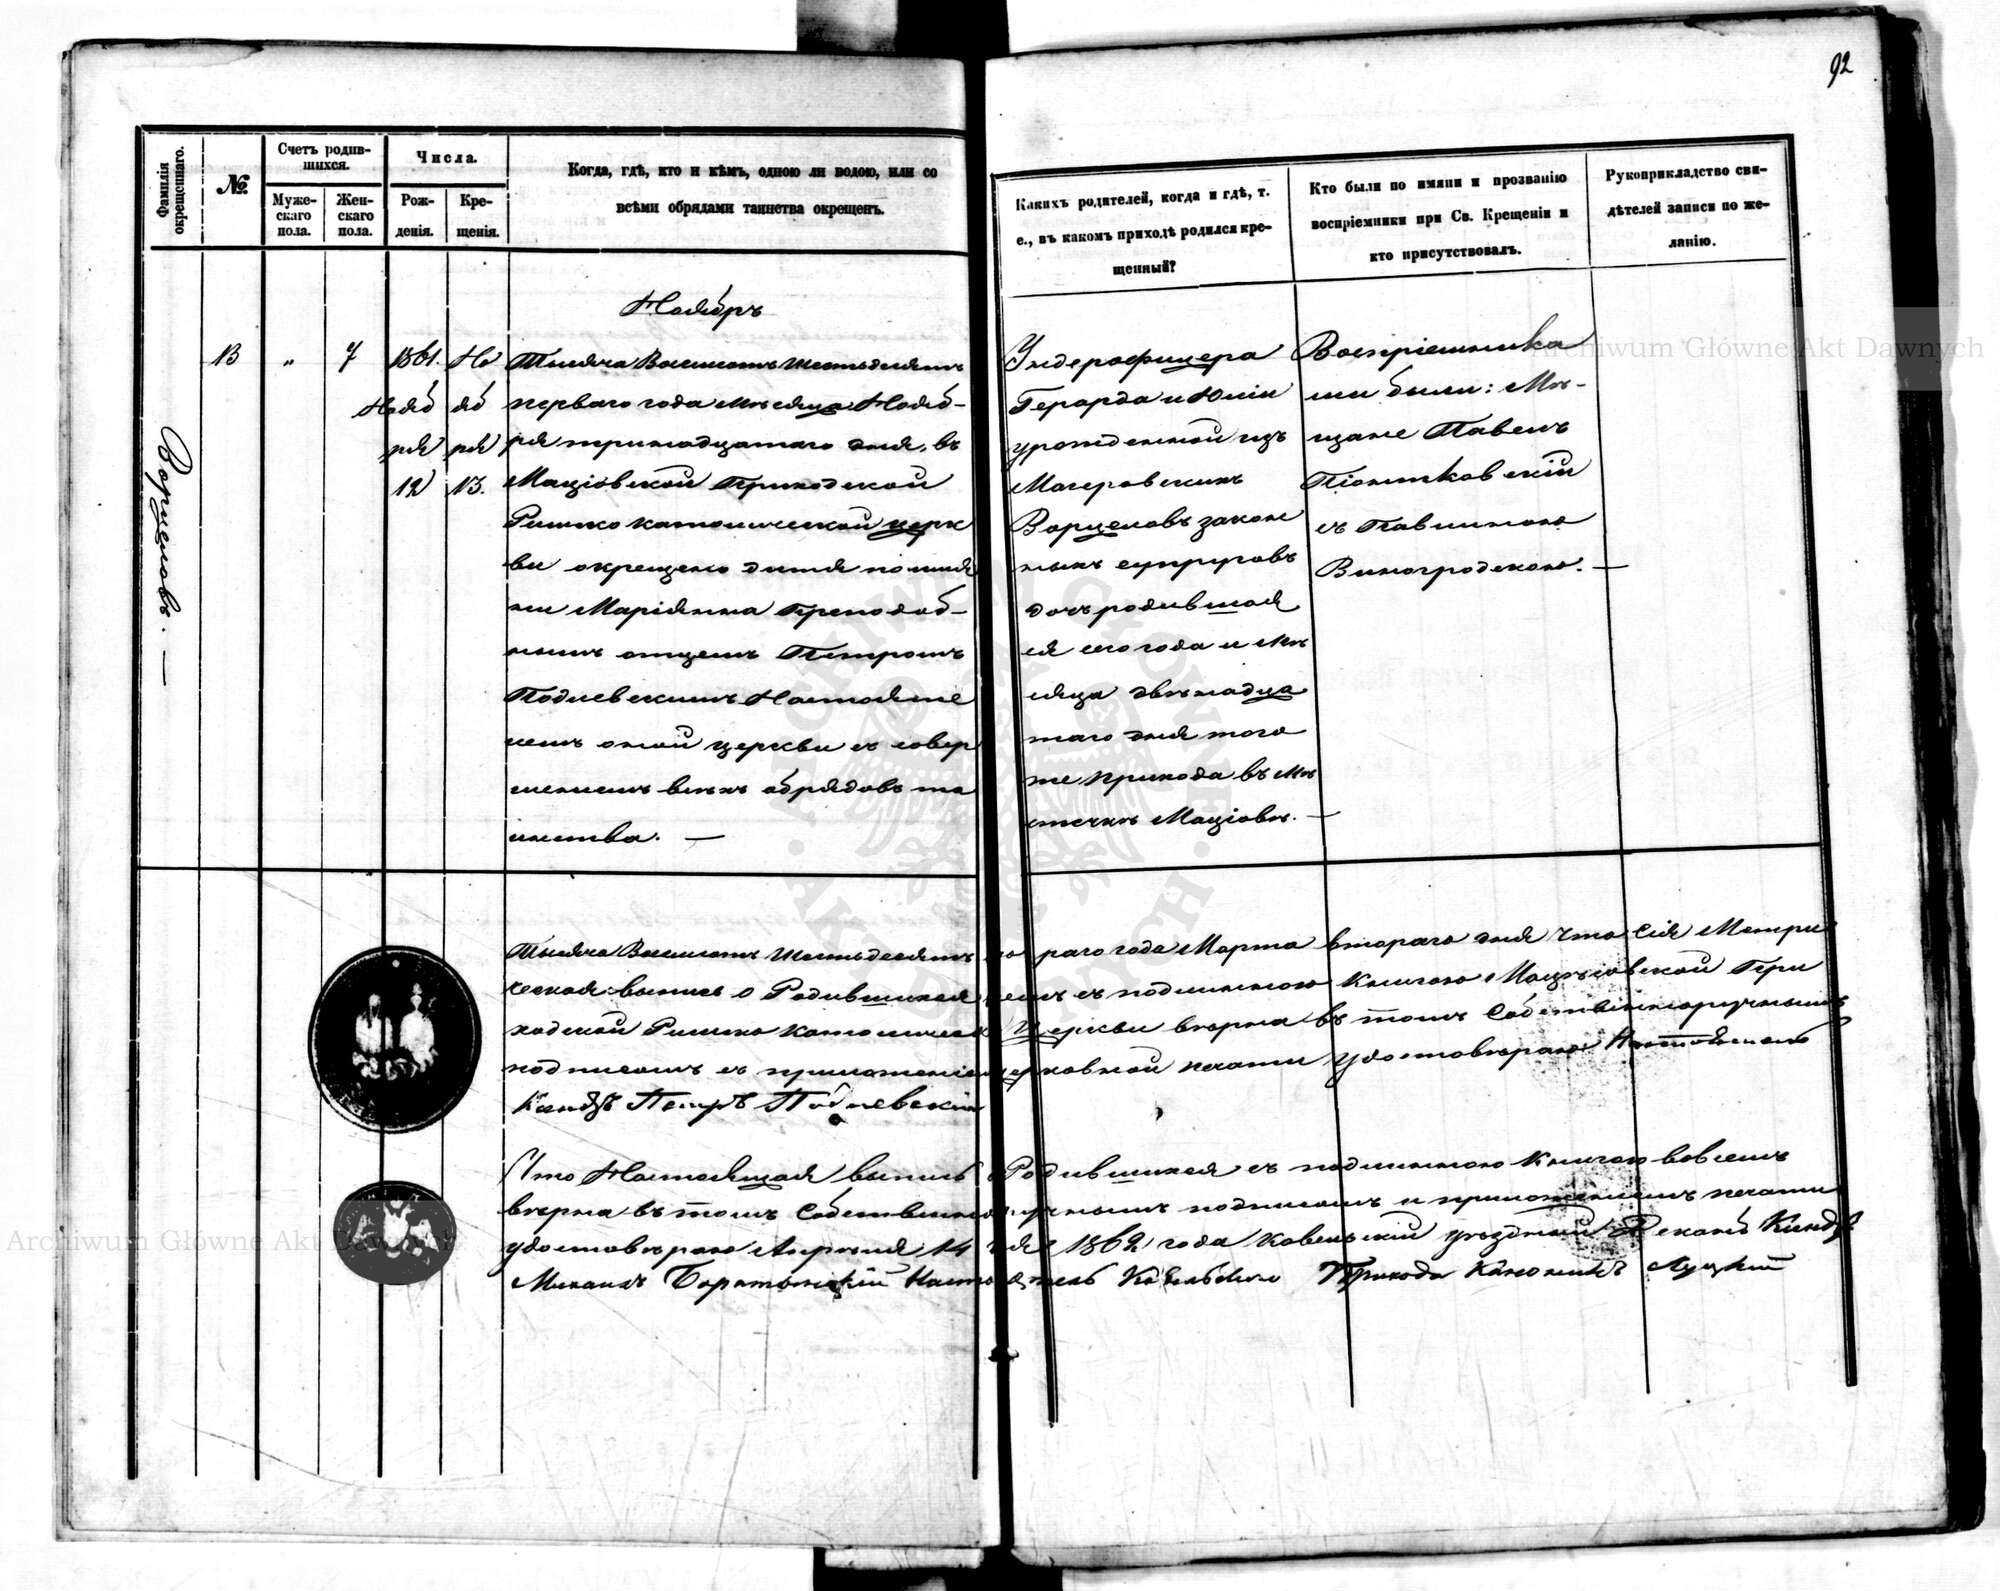 92
Фамилія окрещеннаго.
№.
Счетъ родив-
шихся.
Муже-
скаго
пола.
Жен-
скаго
пола.
Числа.
Рож-
денія.
Кре-
щенія.
Когда, гдѣ, кто и кѣмъ, одною ли водою, или со
всѣми обрядами таинства окрещенъ.
Какихъ родителей, когда и гдѣ, т.
е., въ какомъ приходѣ родился кре-
щенный?
Кто были по имяни и прозванію
воспріемники при Св. Крещеніи и
кто присутствовалъ.
Рукоприкладство сви-
дѣтелей записи по же-
ланію.
Ворцеловъ. —
13 „ 7
1861.
Нояб
ря
12
Но
яб
ря
13.
Ноябрь
Тысяча Восемсотъ Шестьдесятъ
перваго года Мѣсяца Нояб-
ря тринадцатаго дня, въ
Маціовской Приходской
Римско католической церк
ви окрещено дитя по имя
ни Маріянна Преподоб-
нымъ отцемъ Петромъ
Подлевскимъ Настояте
лемъ оной церкви съ совер
шеніемъ всѣхъ обрядовъ та
инства. —
Ундерофицера
Герарда и Юліи
урожденной изъ
Магеровскихъ
Ворцеловъ закон
ныхъ супруговъ
дочь родившая
ся сего года и Мѣ
сяца двѣнадца
таго дня того
же прихода въ мѣ
стечкѣ Маціовѣ. —
Воспріемника
ми были: Мѣ-
щане Павелъ
Піонтковскій
съ Павлиною
Виногродскою. —
Тысяча Восемсотъ Шестьдесятъ раго года Марта втораго дня что Сія Метри
ческая выпись о Родившихся съ подлинною Книгою Мацѣовской При
ходской Римско католической Церкви вѣрна въ томъ Собственноручнымъ
подписомъ съ приложеніемъ церковной печати удостовѣряю Настоятель
Ксендзъ Петръ Подлевскій
Что Настоящая выпись о Родившихся съ подлинною Книгою вовсемъ
вѣрна въ томъ Собственноручнымъ подписомъ и приложеніемъ печати
удостовѣряю Апрѣля 14 дня 1862 года Ковельскій уѣздный Деканъ Ксендзъ
Михаилъ Настоятель Ковельскаго Прихода Каноникъ Луцкій
Archiwum Główne Akt Dawnych
Archiwum Główne Akt Dawnych
ARCHIWUM GŁÓWNE AKT DAWNYCH